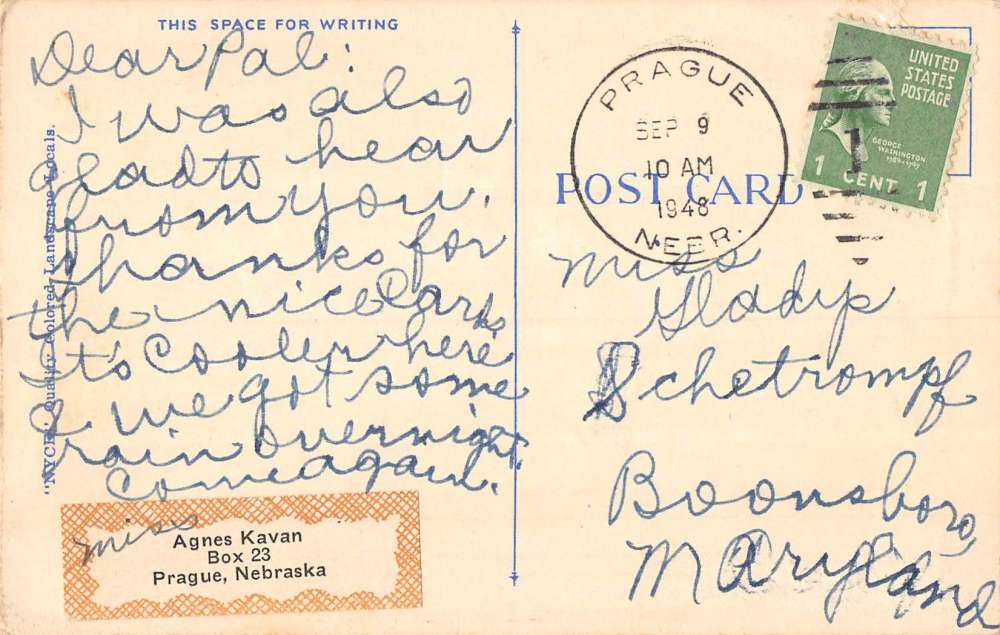 THIS SPACE FOR WRITING
Dear Pal:
I was also
glad to hear
from you.
Thanks for
the nice Card,
It's Cooler here
& we got some
rain overnight.
Come again.
"NYCE" Quality Colored Landscape Locals.
miss
Agnes Kavan
Box 23
Prague, Nebraska
PRAGUE
SEP 9
10 AM
1948
NEBR.
UNITED
STATES
POSTAGE
GEORGE
WASHINGTON
1789-1797
1 CENT 1
1
POST CARD
Miss
Gladys
Schetrompf
Boonsboro,
Maryland